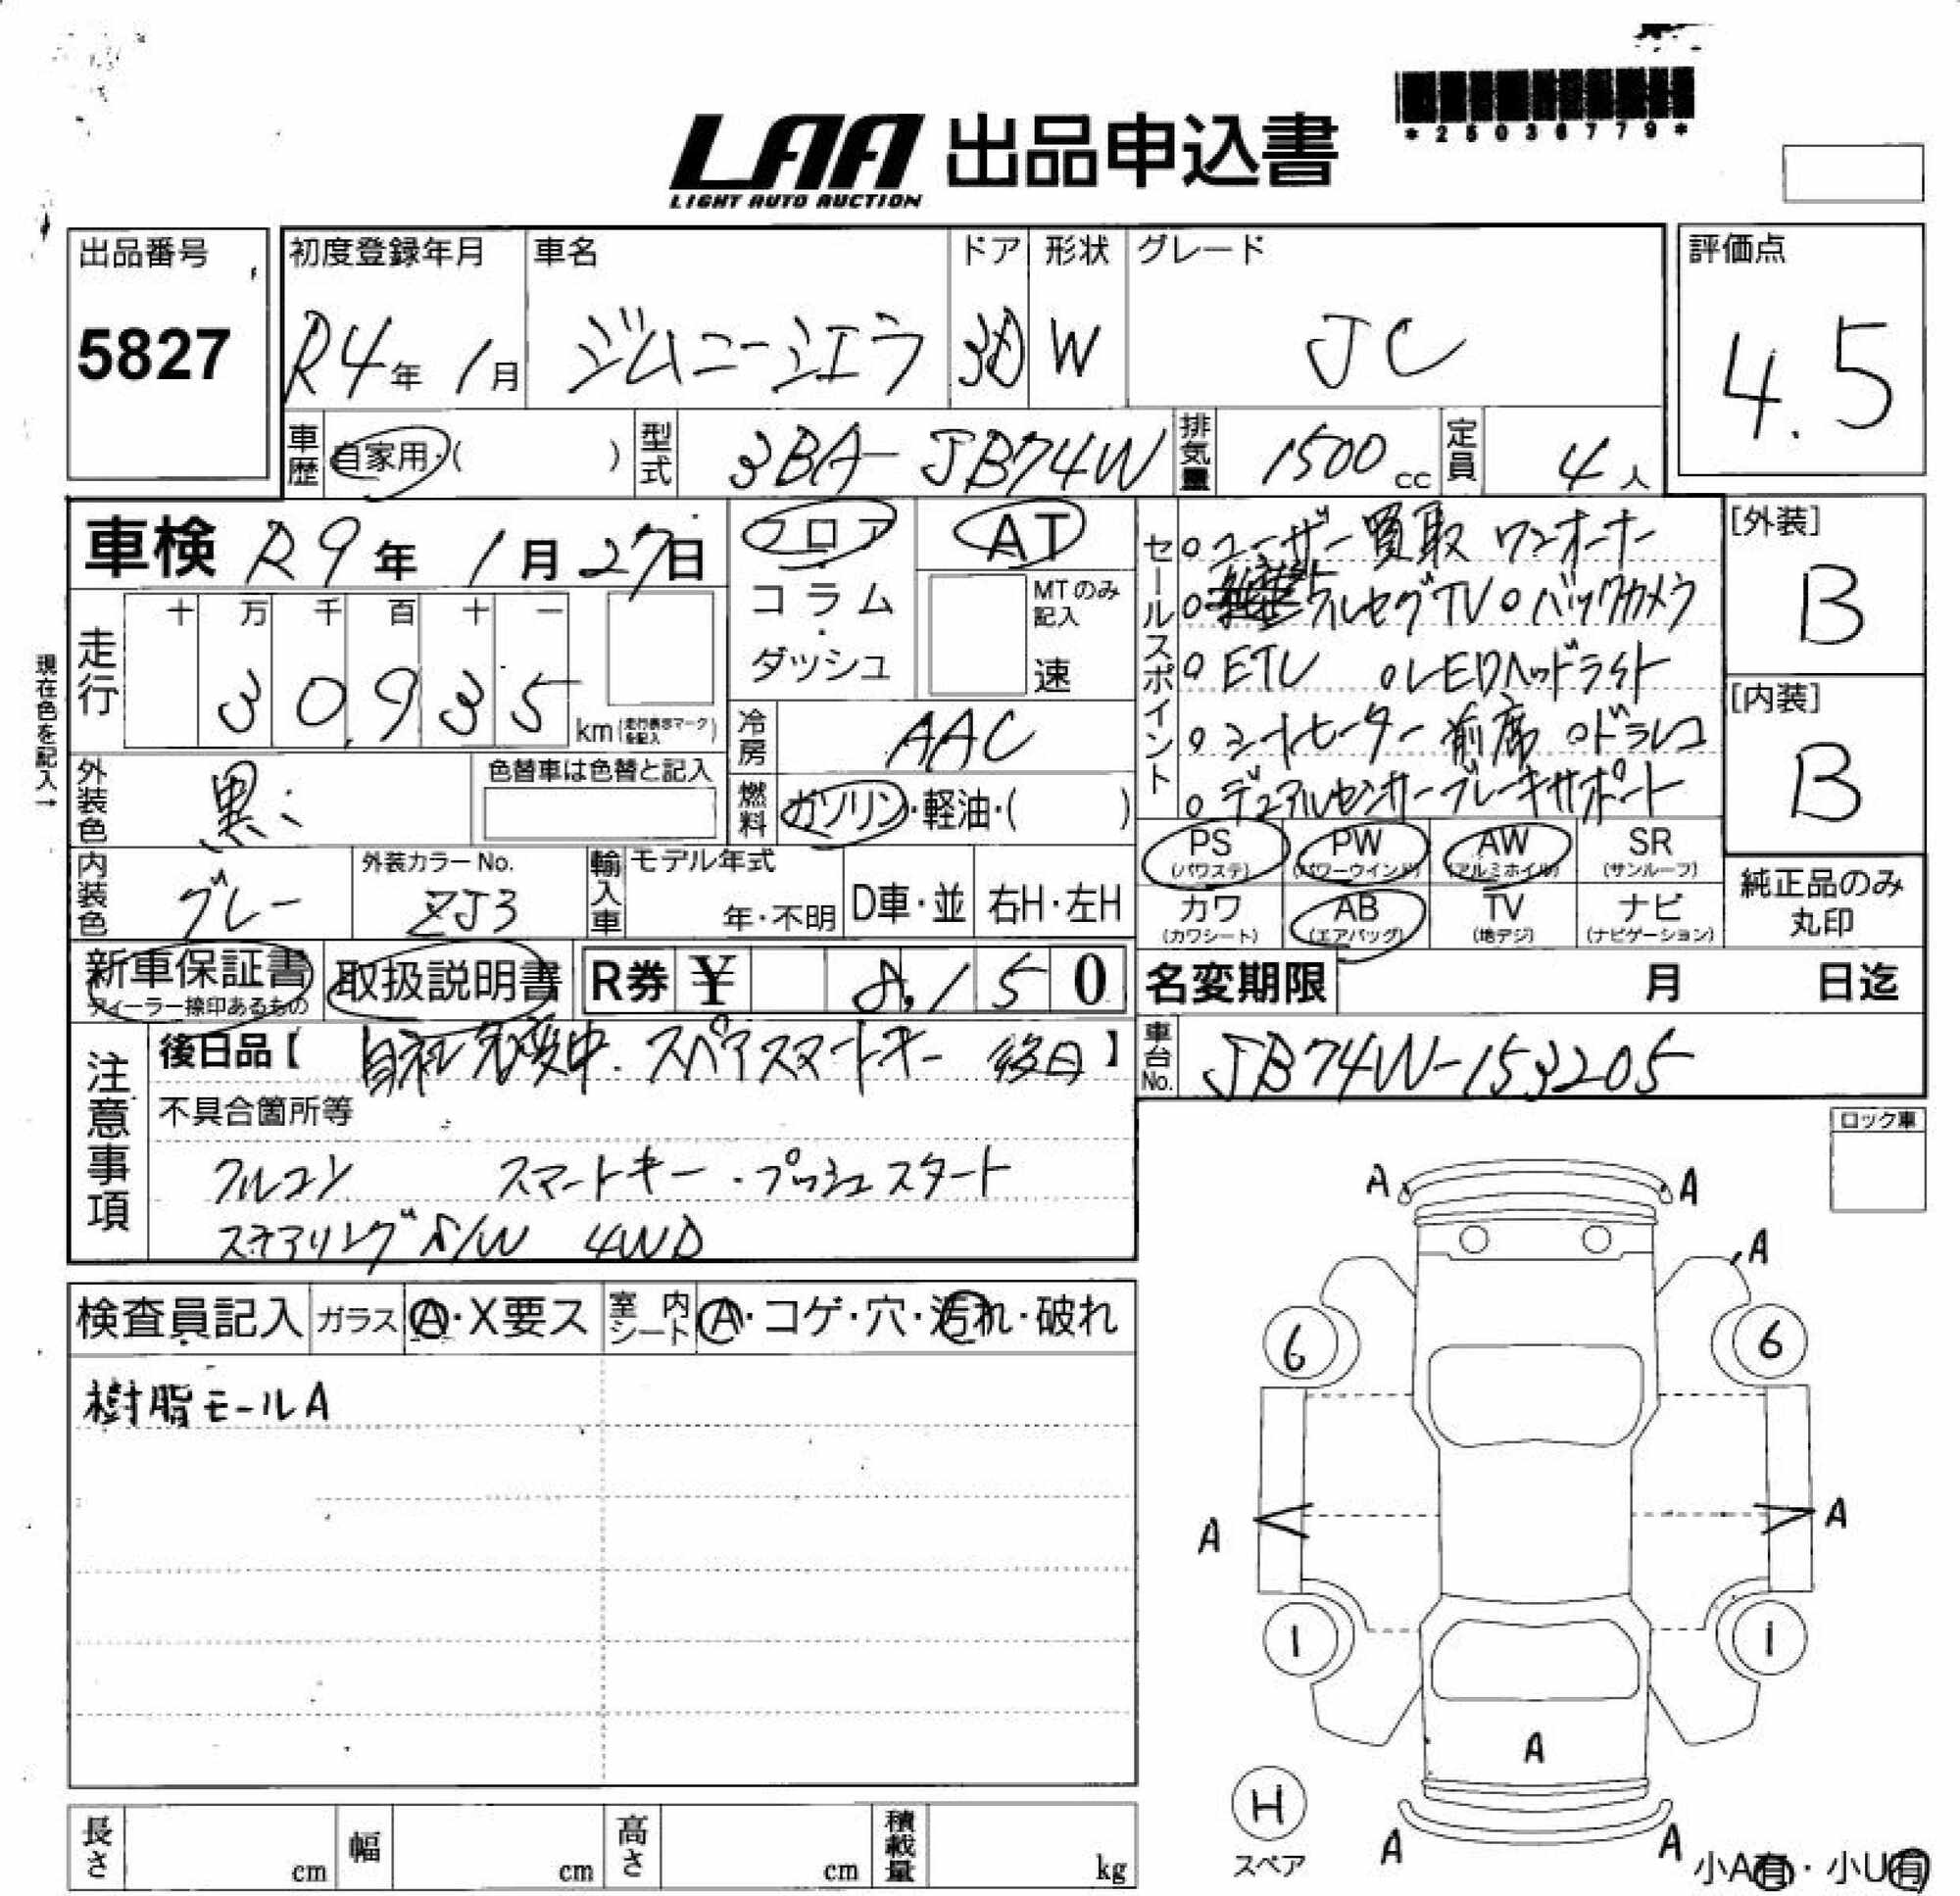 *25036779*
LAA 出品申込書
LIGHT AUTO AUCTION
出品番号
5827
初度登録年月 車名 ドア 形状 グレード
R4年 1月 ジムニーシエラ 3D W JC
評価点
4.5
車歴 自家用・( ) 型式 3BA-JB74W 排気量 1500cc 定員 4人
車検 R9年 1月27日
フロア
コラム・
ダッシュ
AT
MTのみ記入
速
現在色を記入→
走行
十 万 千 百 十 一
30,935
km(走行表示マークを記入)
冷房 AAC
燃料 ガソリン・軽油・( )
外装色 黒 色替車は色替と記入
内装色 グレー 外装カラーNo. ZJ3
輸入車 モデル年式 年・不明 D車・並 右H・左H
セールスポイント
○ユーザー買取 ワンオーナー
○フルセグTV ○バックカメラ
○ETC ○LEDヘッドライト
○シートヒーター前席 ○ドラレコ
○デュアルセンサーブレーキサポート
[外装]
B
[内装]
B
PS (パワステ) PW (パワーウインド) AW (アルミホイル) SR (サンルーフ)
カワ (カワシート) AB (エアバッグ) TV (地デジ) ナビ (ナビゲーション)
純正品のみ
丸印
新車保証書 ディーラー捺印あるもの 取扱説明書 R券 ¥ 8,150
名変期限 月 日迄
車台No. JB74W-153205
注意事項
後日品【 自社名変中.スペアスマートキー 後日 】
不具合箇所等
クルコン スマートキー・プッシュスタート
ステアリングS/W 4WD
ロック車
検査員記入 ガラス A・X要ス 室内シート A・コゲ・穴・汚れ・破れ
樹脂モールA
A A
A
6 6
A A
1 1
A
H
スペア
A A
小A有・小U有
長さ cm 幅 cm 高さ cm 積載量 kg